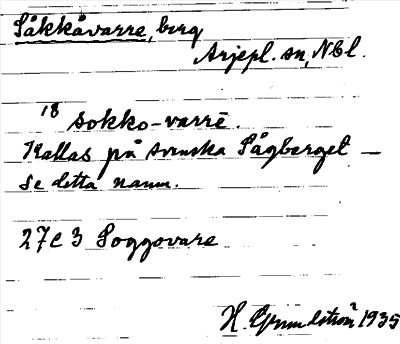 Såkkåvarre, berg
Arjepl. sn, Nbl.
18 sokko-varrē.
Kallas på svenska Sågberget —
Se detta namn.
27C3 Soggovare
H. Grundström 1935